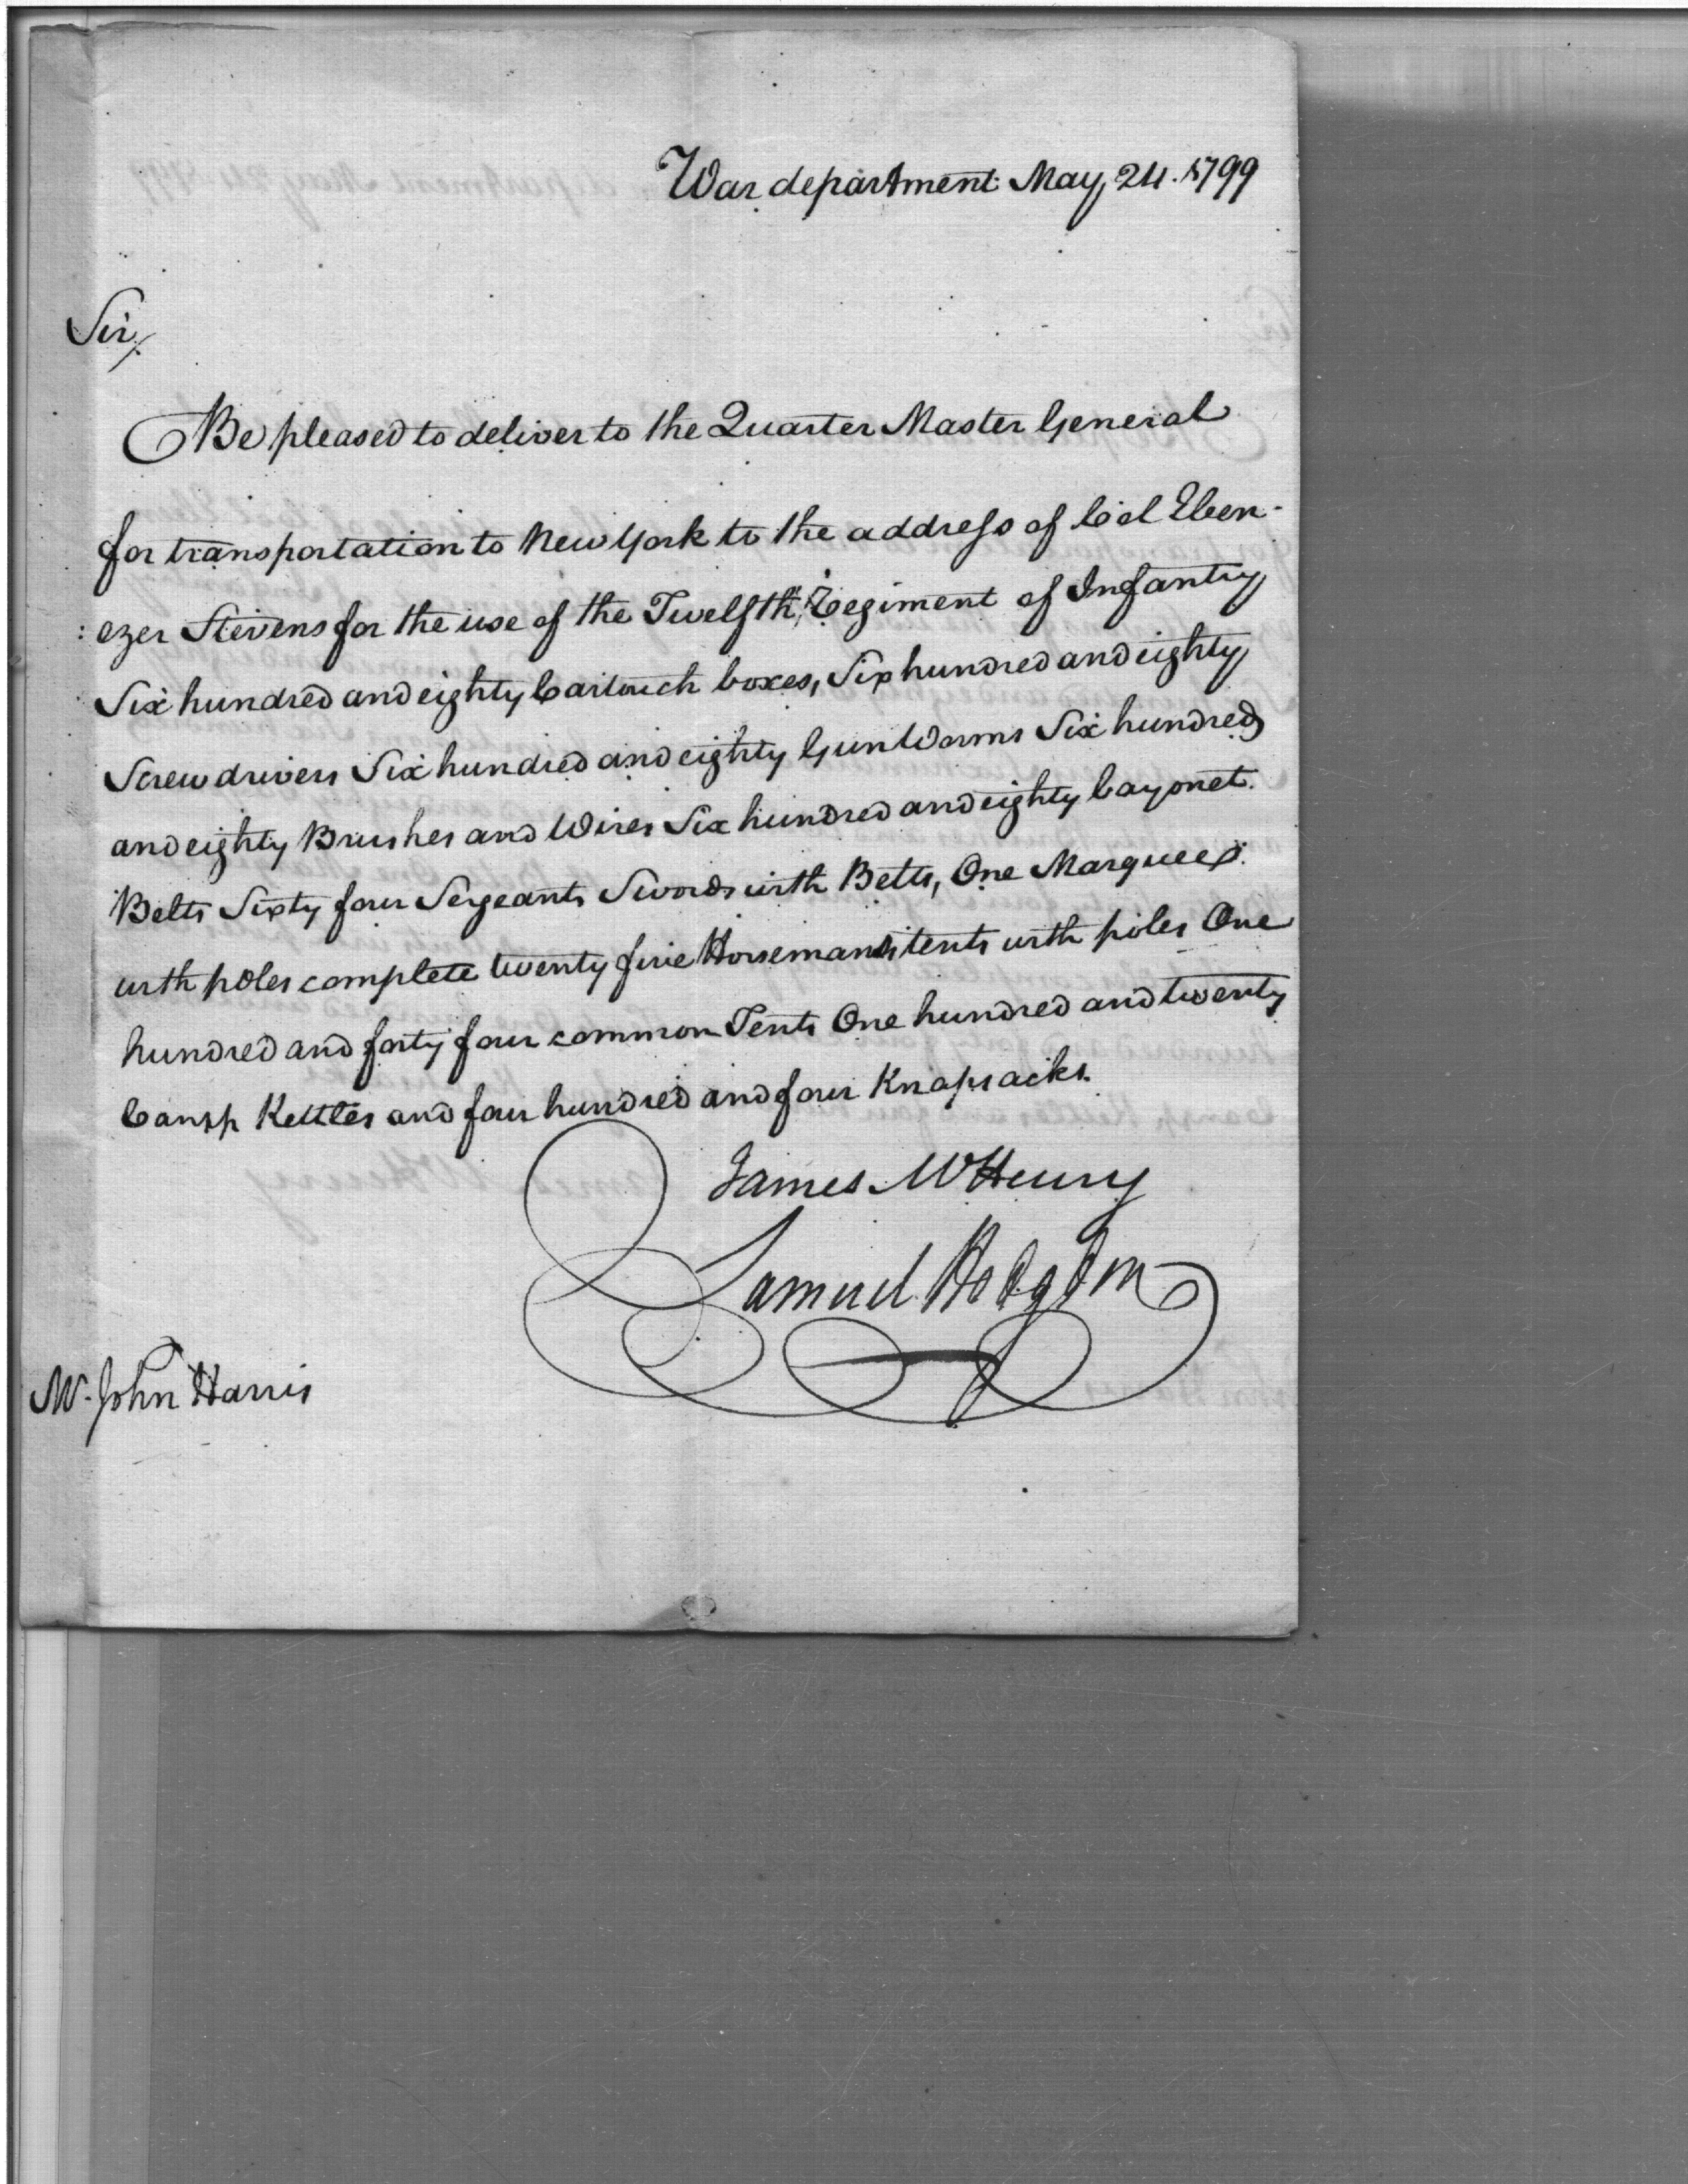 War department May, 24. 1799
Sir,
Be pleased to deliver to the Quarter Master General
for transportation to New York to the address of Col Eben-
: ezer Stevens for the use of the Twelfth Regiment of Infantry
Six hundred and eighty Cartouch boxes, Six hundred and eighty
Screw drivers Six hundred and eighty Gun Worms Six hundred
and eighty Brushes and Wires Six hundred and eighty bayonet
Belts Sixty four Sergeants Swords with Belts, One Marquee
with poles complete twenty five Horsemans tents with poles One
hundred and forty four common Tents One hundred and twenty
Camp Kettles and four hundred and four Knapsacks.
James McHenry
Samuel Hodgdon
Mr. John Harris